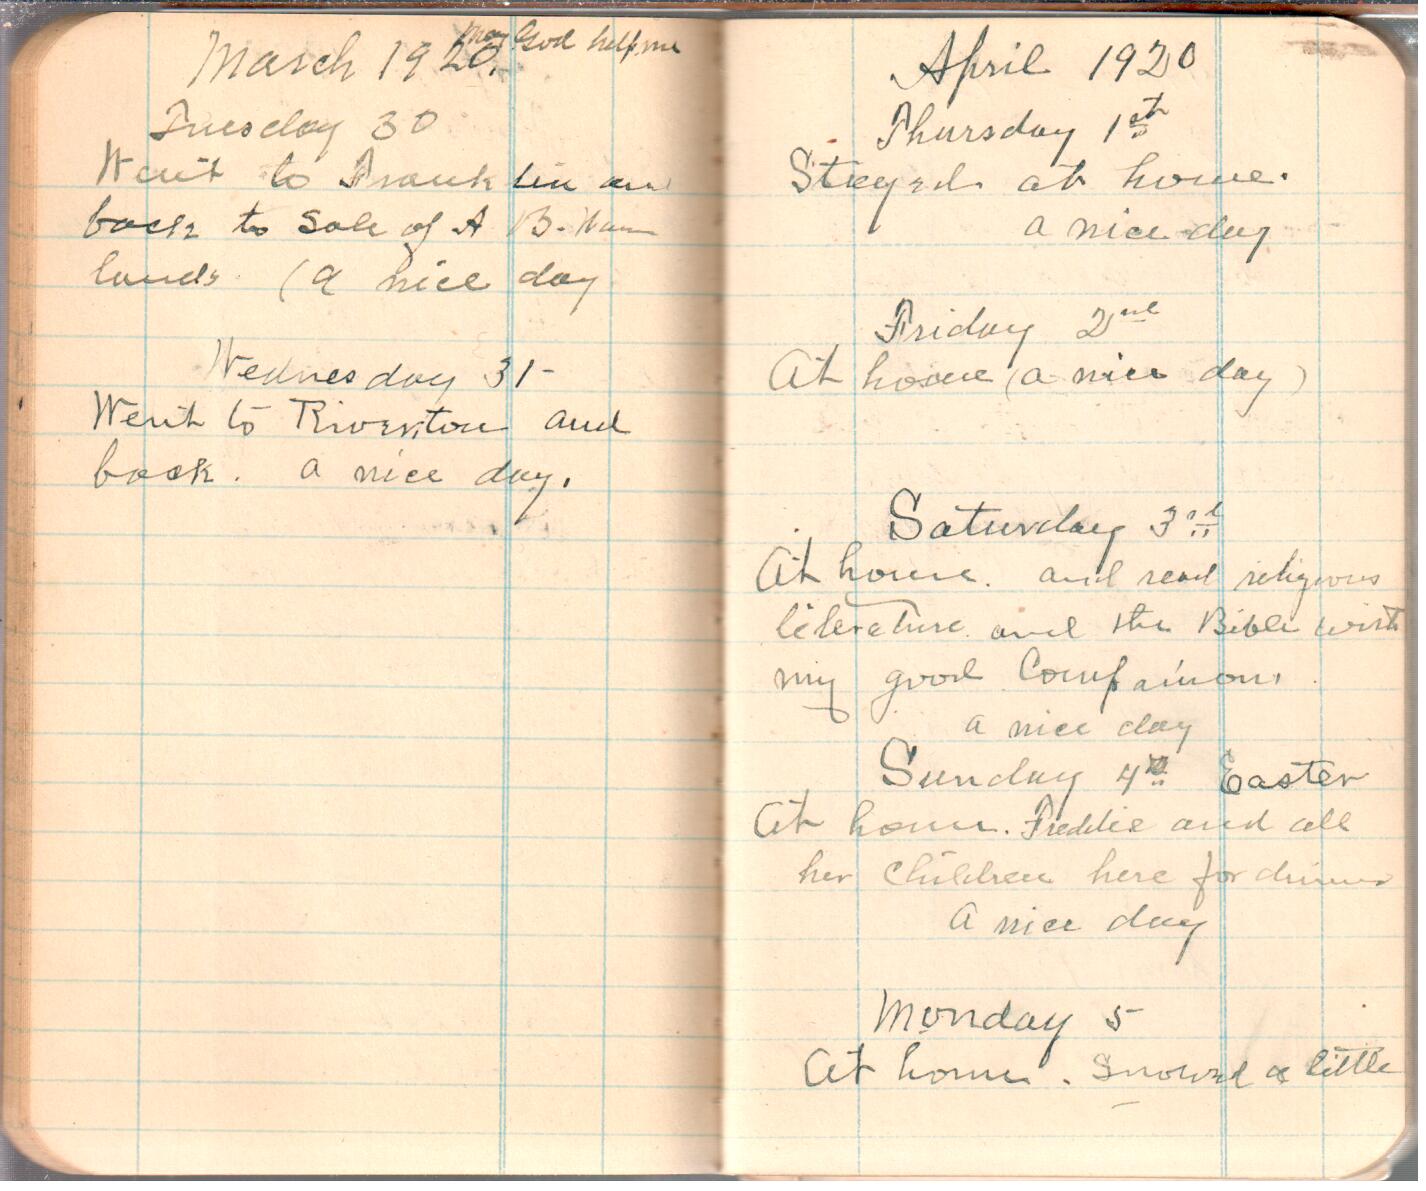 March 1920. May God help me
Tuesday 30
Went to Franklin and
back to Sale of A B.
lands (a nice day
Wednesday 31-
Went to Riverton and
back. a nice day.
April 1920
Thursday 1st
Stayed at home.
a nice day
Friday 2nd
At home (a nice day)
Saturday 3rd
At home. and read religious
literature and the Bible with
my good Compainon.
a nice day
Sunday 4th Easter
At home. Freddie and all
her Children here for dinner
A nice day
Monday 5
At home. Snowed a little